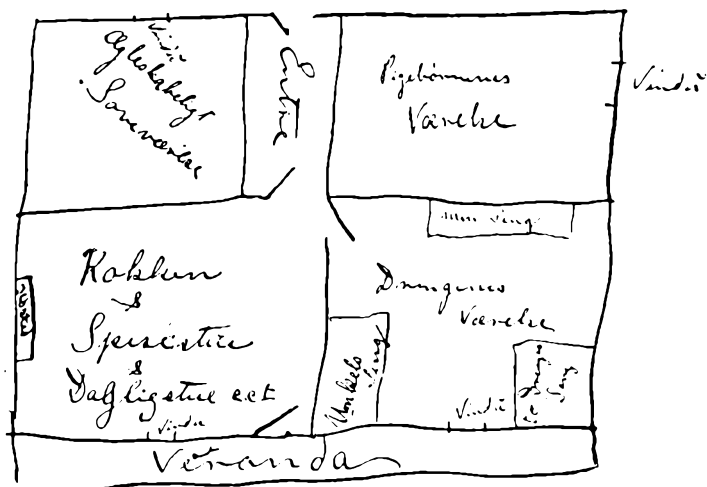 Vindu
Ægteskabeligt
Soveværelse
Entre
Pigebørnenes
Værelse
Vindu
min Seng
Køkken
&
Spisestue
&
Dagligstue ect
Vindu
Drengenes
Værelse
Onkels
Seng
Vindu
Drenges
Seng
Veranda